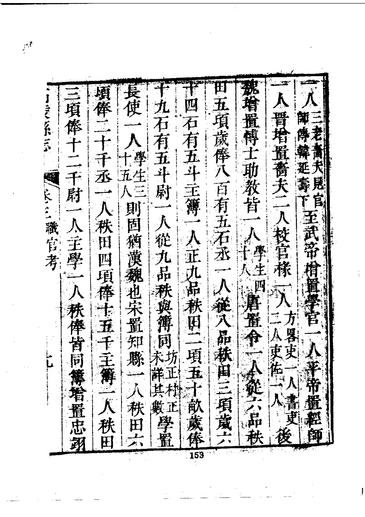 一人三老嗇夫見官師傅韓延壽下至武帝增置學官一人平帝置經師
一人晉增置嗇夫二人校官椽一人方略吏一人書吏二人吏佐一人後
魏增置博士助教皆一人學生四十八人唐置令一人從六品秩
田五項歲俸八百有五石丞一人從八品秩田三項歲六
十四石有五斗主簿一人正九品秩田二項五十畝歲俸
十九石有五斗尉一人從九品秩與簿同坊正村正未詳其數學置
長使一人學生三十五人則固猶漢魏也宋置知縣一人秩田六
項俸二十千丞一人秩田四項俸十五千主簿一人秩田
三項俸十二千尉一人主學一人秩俸皆同簿增置忠翊
陵縣志 卷三職官考 九
153